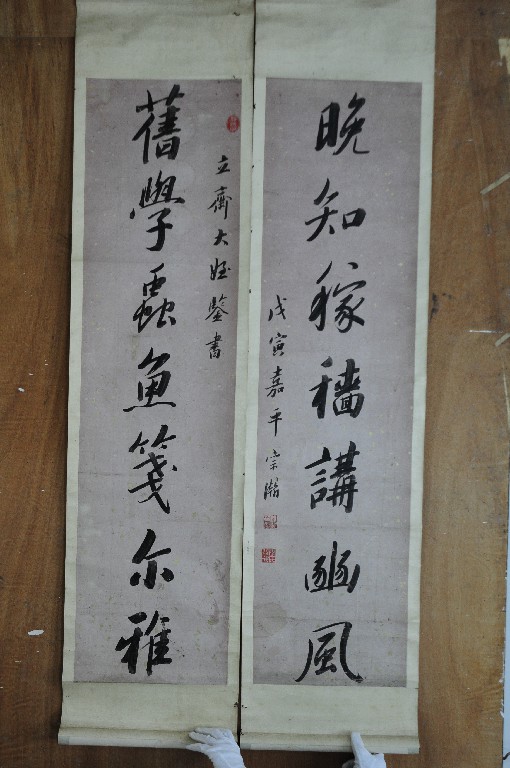 晚知稼穡講豳風
戊寅嘉平宗瀚
立齊大姪鑒書
舊學蟲魚箋尔雅